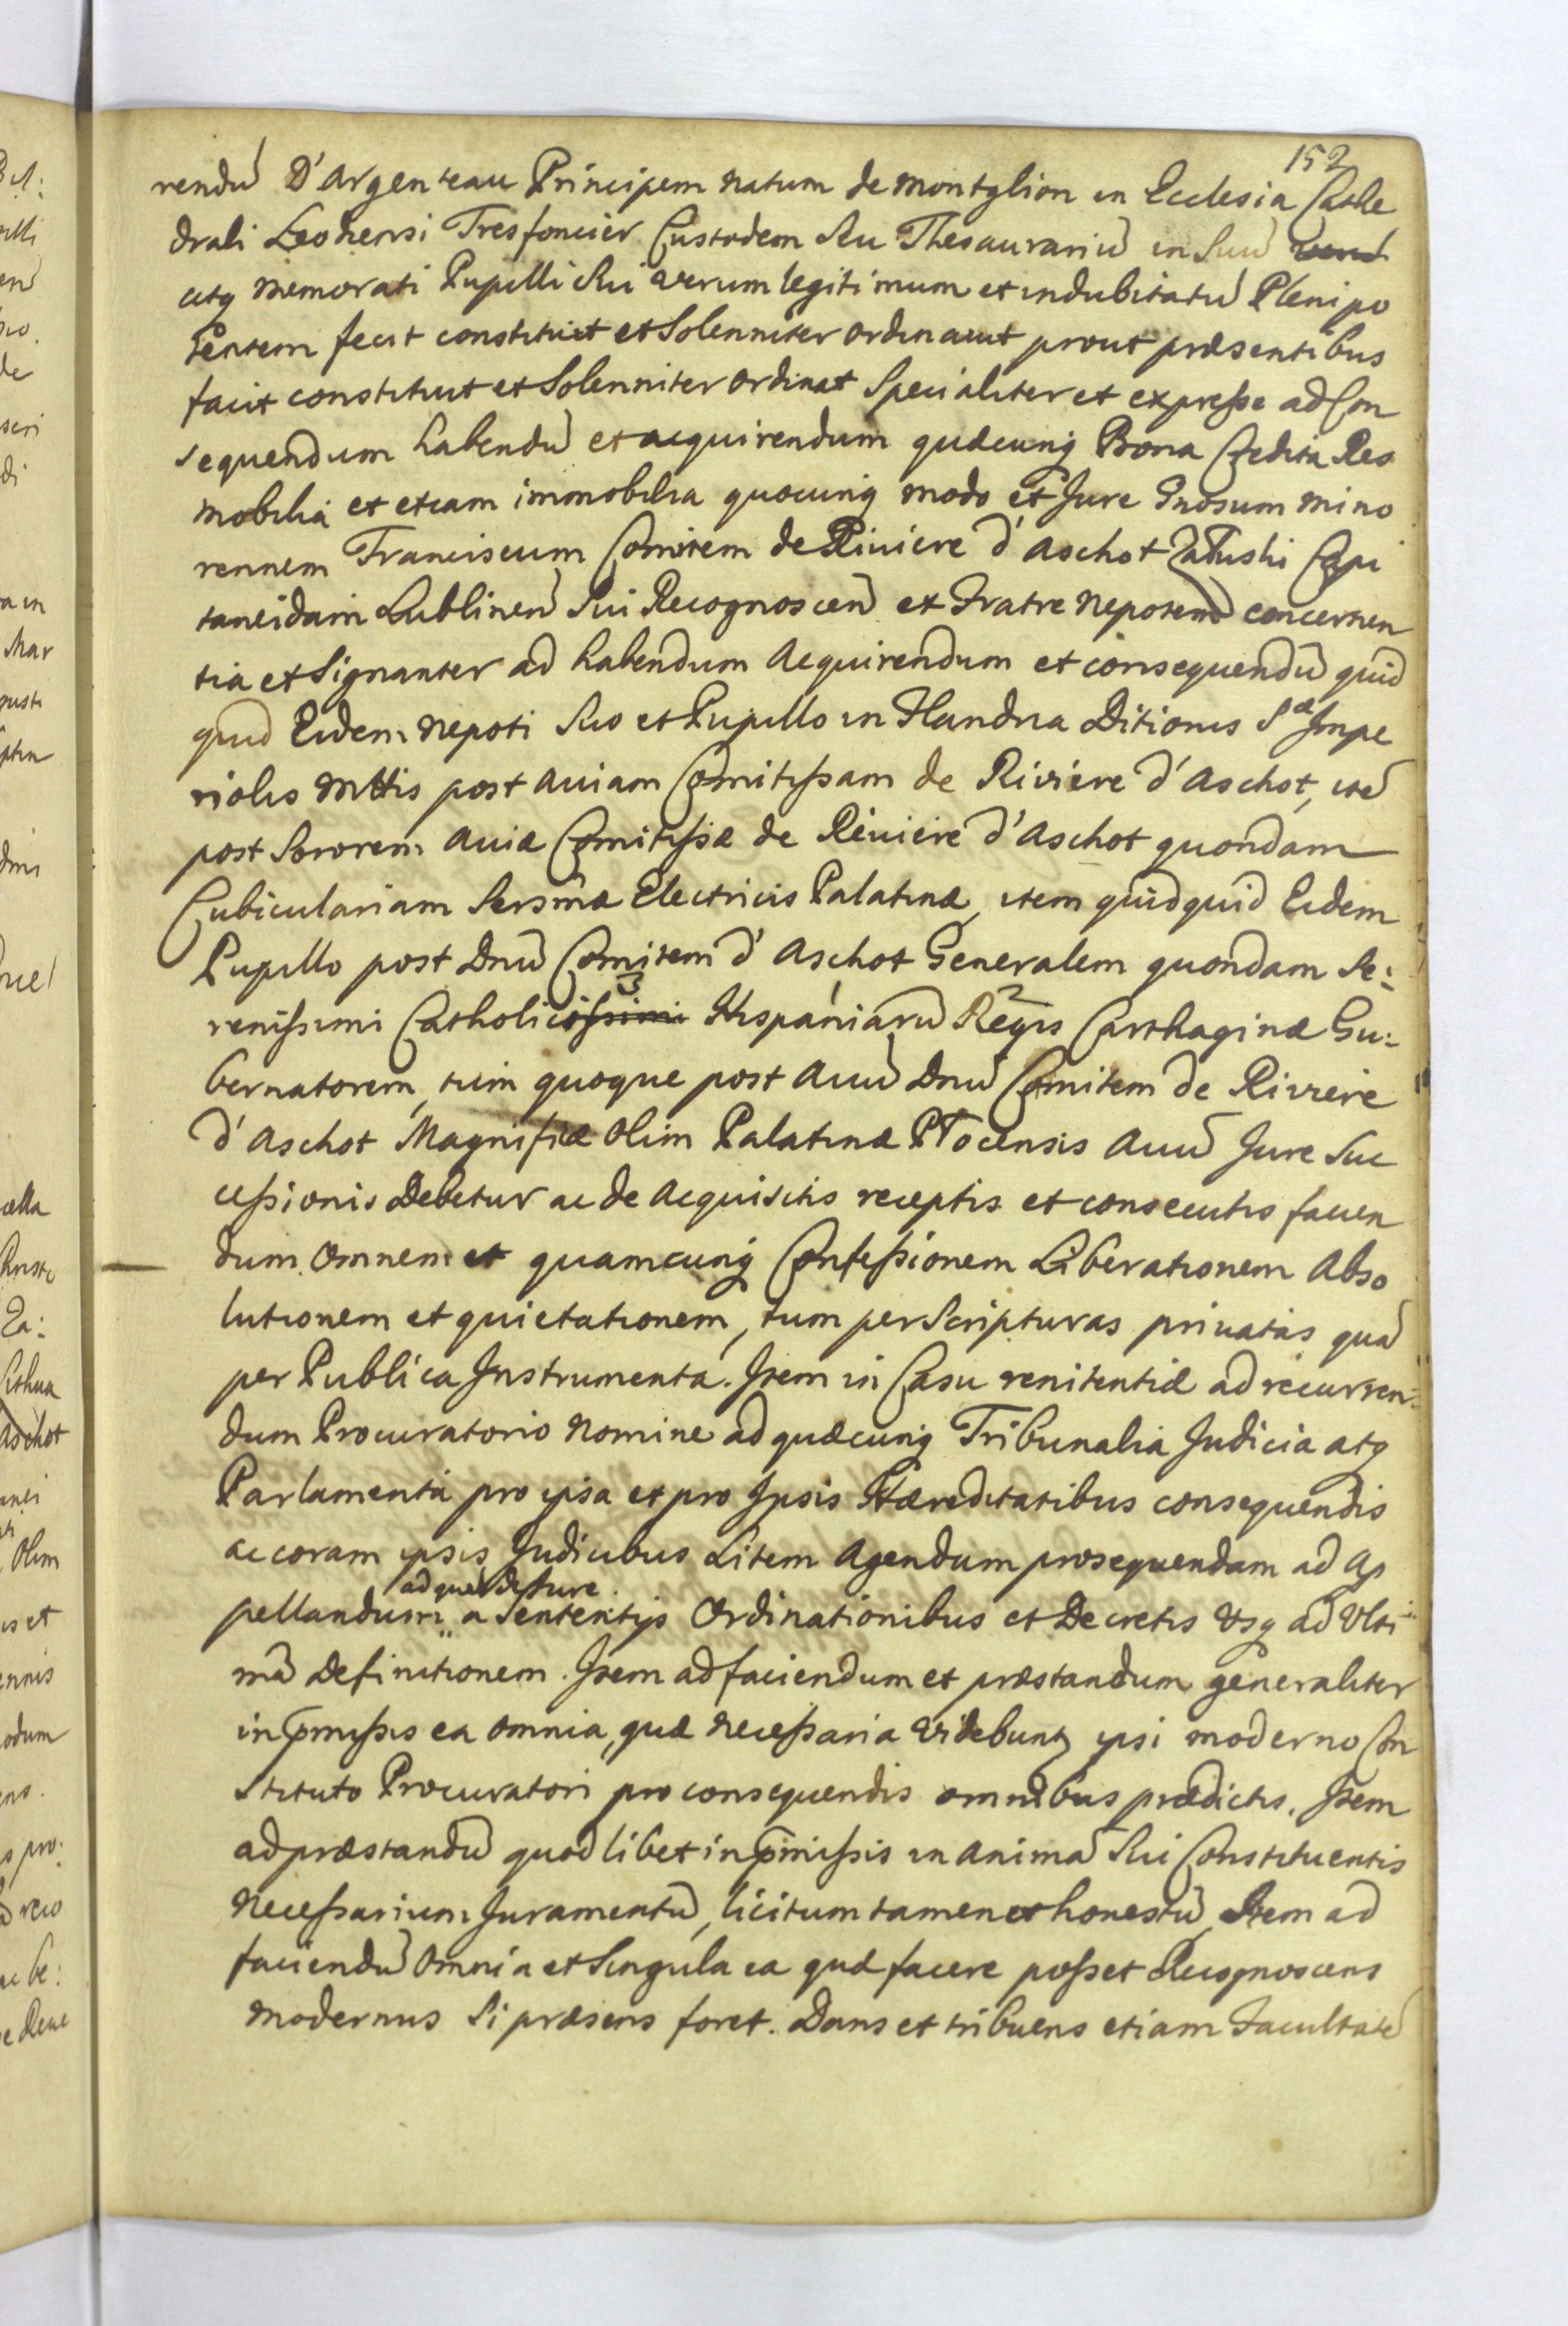 152
rendũ D'Argenteau Principem natum de Montglion in Ecclesia Cathe
drali Leodiensi Tresfoncier Custodem seu Thesaurariũ in Suũ
atq memorati Pupilli Sui verum legitimum et indubitatũ Plenipo
tentem fecit constituit et Solenniter ordinavit prout præsentibus
facit constituit et Solenniter ordinat Specialiter et expresse ad Con
sequendum habendũ et acquirendum quæcunq Bona Credita Res
mobilia et etiam immobilia quocunq modo et Jure Gnosum mino
rennem Franciscum Comitem de Riviere d'Aschot Załuski Capi
taneidam Lublinen Sui Recognoscen et Fratre Nepotem concernen
tia et Signanter ad habendum Acquirendum et consequendũ quid
quid Eidem Nepoti Suo et Pupillo in Flandria Ditionis Sæ Impe
rialis Mttis post Aviam Comitissam de Riviere d'Aschot, itẽ
post Sororem Aviæ Comitissæ de Riviere d'Aschot quondam
Cubiculariam Sersmæ Electricis Palatinæ, item quidquid Eidem
Pupillo post Dnũ Comitem d'Aschot Generalem quondam Se:
renissimi Catholicissimi 3 Hispaniarũ Regis 2 Carthaginæ Gu:
bernatorem, tum quoque post Avũ Dnũ Comitem de Riviere
d'Aschot Magnificæ Olim Palatinæ Płocensis Avũ Jure Suc
cessionis Debetur ac de Acquisitis receptis et consecutis facien
dum Omnem et quamcunq Confessionem Liberationem Abso
lutionem et quietationem, tum per Scripturas privatas quã
per Publica Instrumenta. Item in Casu renitentiæ ad recurren:
dum Procuratorio Nomine ad quæcunq Tribunalia Judicia atq
Parlamenta pro ipsa et pro Ipsis Hæreditatibus consequendis
ac coram ipsis Judicibus Litem Agendum prosequendam ad Ap
ad quẽ de Jure
pellandum a Sententijs Ordinationibus et Decretis Usq ad Ulti
mã Definitionem. Item ad faciendum et præstandum generaliter
in pmissis ea omnia, quæ Necessaria Videbunt ipsi moderno Con
stituto Procuratori pro consequendis omnibus prædictis. Item
ad præstandũ quodlibet in pmissis in Animã Sui Constituentis
Necessarium Juramentũ, licitum tamen et honestũ, Item ad
faciendũ Omnia et Singula ea quæ facere posset Recognoscens
modernus Si præsens foret. Dans et tribuens etiam Facultatẽ